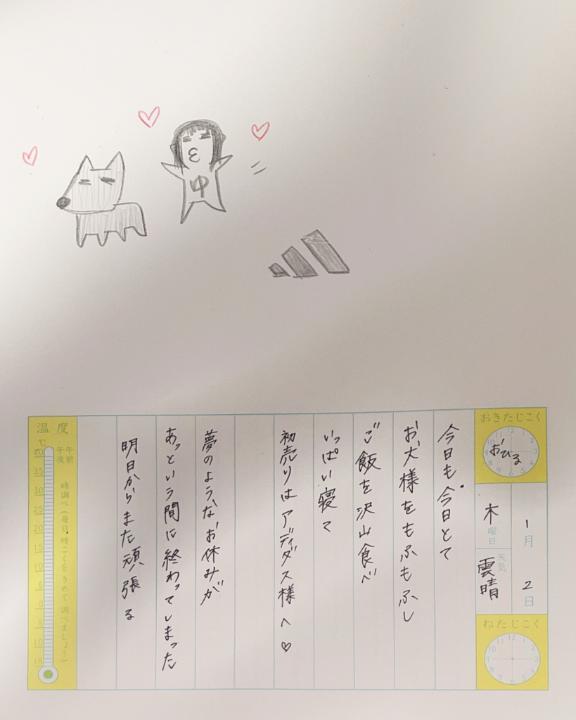 ゆ
おきたじこく
おひる
1月2日
木曜日
天気
雲晴
ねたじこく
今日も今日とて
お犬様をもふもふし
ご飯を沢山食べ
いっぱい寝て
初売りはアディダス様へ♡
夢のようなお休みが
あっという間に終わってしまった
明日からまた頑張る
温度
℃
午前
午後